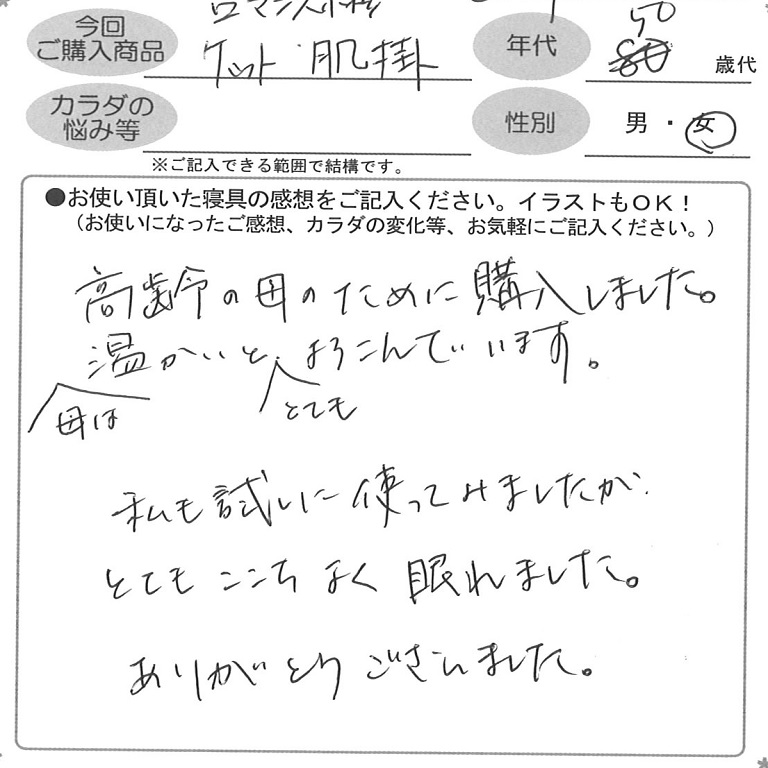 今回
ご購入商品
ロマンス小杉
ケット 肌掛
年代
50
80
歳代
カラダの
悩み等
性別
男・女
※ご記入できる範囲で結構です。
●お使い頂いた寝具の感想をご記入ください。イラストもOK!
(お使いになったご感想、カラダの変化等、お気軽にご記入ください。)
高齢の母のために購入しました。
温かいと よろこんでいます。
母は
とても
私も試しに使ってみましたが
とてもここちよく眠れました。
ありがとうございました。